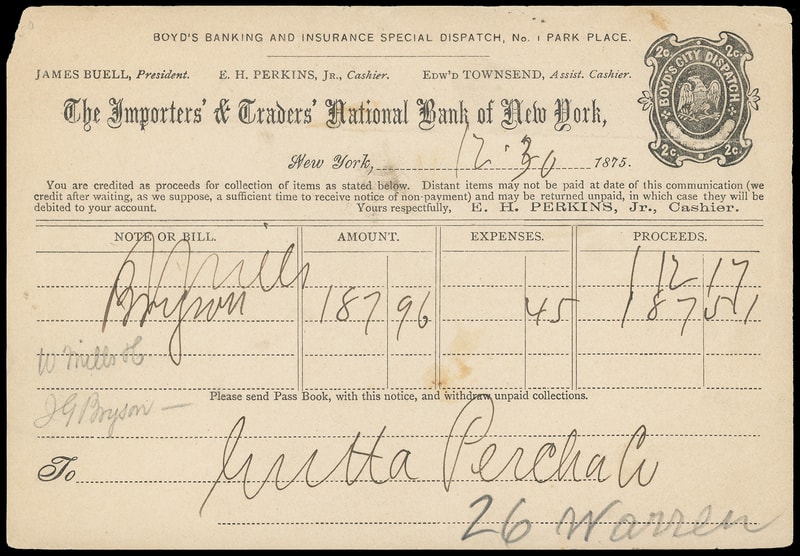 BOYD'S BANKING AND INSURANCE SPECIAL DISPATCH, No. 1 PARK PLACE.
2c. 2c.
BOYD'S CITY DISPATCH.
2c. 2c.
JAMES BUELL, President. E. H. PERKINS, Jr., Cashier. Edw'd TOWNSEND, Assist. Cashier.
The Importers' & Traders' National Bank of New York,
New York, 12.30 1875.
You are credited as proceeds for collection of items as stated below. Distant items may not be paid at date of this communication (we
credit after waiting, as we suppose, a sufficient time to receive notice of non-payment) and may be returned unpaid, in which case they will be
debited to your account. Yours respectfully, E. H. PERKINS, Jr., Cashier.
NOTE OR BILL. AMOUNT. EXPENSES. PROCEEDS.
Mills 112 17
Bryson 187 96 45 187 51
W Mills
J G Bryson —
Please send Pass Book, with this notice, and withdraw unpaid collections.
To Gutta Percha Co
26 Warren